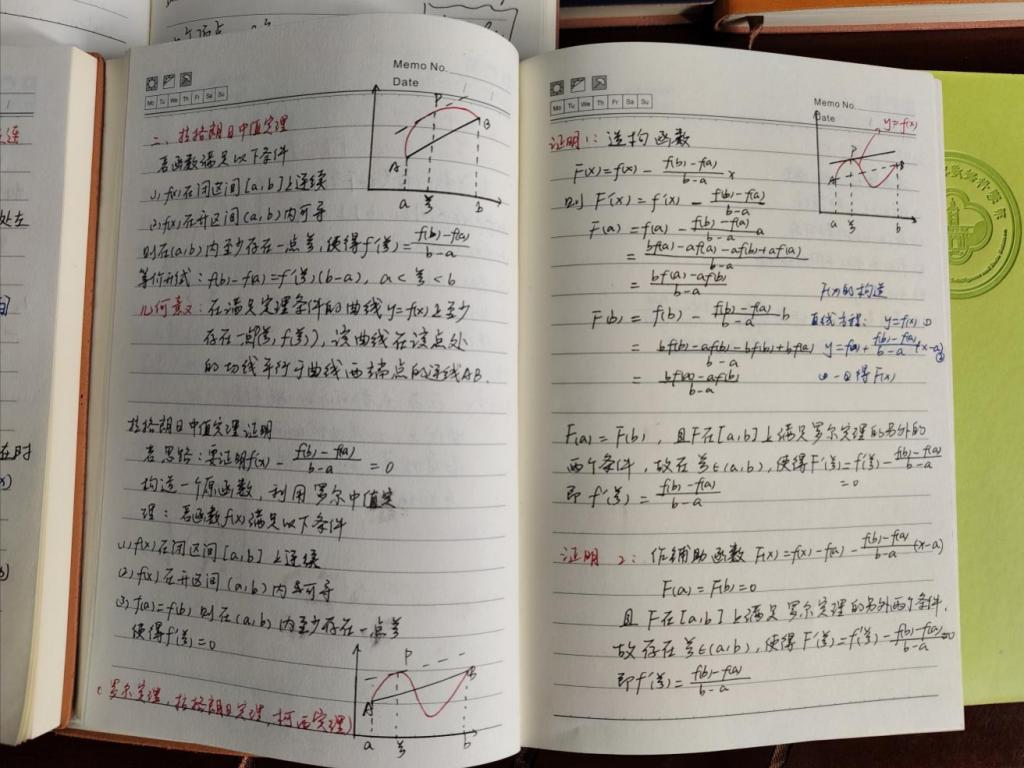 Memo No.
Date
Mo Tu We Th Fr Sa Su
二、拉格朗日中值定理
若函数满足以下条件
(1) f(x)在闭区间[a,b]上连续
(2) f(x)在开区间(a,b)内可导
则在(a,b)内至少存在一点ξ,使得f'(ξ)=\frac{f(b)-f(a)}{b-a}
等价形式:f(b)-f(a)=f'(ξ)(b-a), a<ξ<b
几何意义:在满足定理条件的曲线y=f(x)上至少
存在一点(ξ, f(ξ)),该曲线在该点处
的切线平行于曲线两端点的连线AB.
P
A
B
a
ξ
b
拉格朗日中值定理证明
思路:要证明f'(x)-\frac{f(b)-f(a)}{b-a}=0
构造一个原函数,利用罗尔中值定
理:若函数f(x)满足以下条件
(1) f(x)在闭区间[a,b]上连续
(2) f(x)在开区间(a,b)内可导
(3) f(a)=f(b) 则在(a,b)内至少存在一点ξ
使得f'(ξ)=0
(罗尔定理,拉格朗日定理,柯西定理)
P
A
B
a
ξ
b
Memo No.
Date
Mo Tu We Th Fr Sa Su
证明1:造构函数
F(x)=f(x)-\frac{f(b)-f(a)}{b-a}x
则F'(x)=f'(x)-\frac{f(b)-f(a)}{b-a}
F(a)=f(a)-\frac{f(b)-f(a)}{b-a}a
=\frac{bf(a)-af(a)-af(b)+af(a)}{b-a}
=\frac{bf(a)-af(b)}{b-a}
F(b)=f(b)-\frac{f(b)-f(a)}{b-a}b
=\frac{bf(b)-af(b)-bf(b)+bf(a)}{b-a}
=\frac{bf(a)-af(b)}{b-a}
y=f(x)
P
A
B
a
ξ
b
F(x)的构造
直线方程:y=f(x) ①
y=f(a)+\frac{f(b)-f(a)}{b-a}(x-a) ②
①-②得F(x)
F(a)=F(b),且F在[a,b]上满足罗尔定理的另外的
两个条件,故在ξ∈(a,b),使得F'(ξ)=f'(ξ)-\frac{f(b)-f(a)}{b-a}=0
即f'(ξ)=\frac{f(b)-f(a)}{b-a}
证明2:作辅助函数F(x)=f(x)-f(a)-\frac{f(b)-f(a)}{b-a}(x-a)
F(a)=F(b)=0
且F在[a,b]上满足罗尔定理的另外两个条件.
故存在ξ∈(a,b),使得F'(ξ)=f'(ξ)-\frac{f(b)-f(a)}{b-a}=0
即f'(ξ)=\frac{f(b)-f(a)}{b-a}